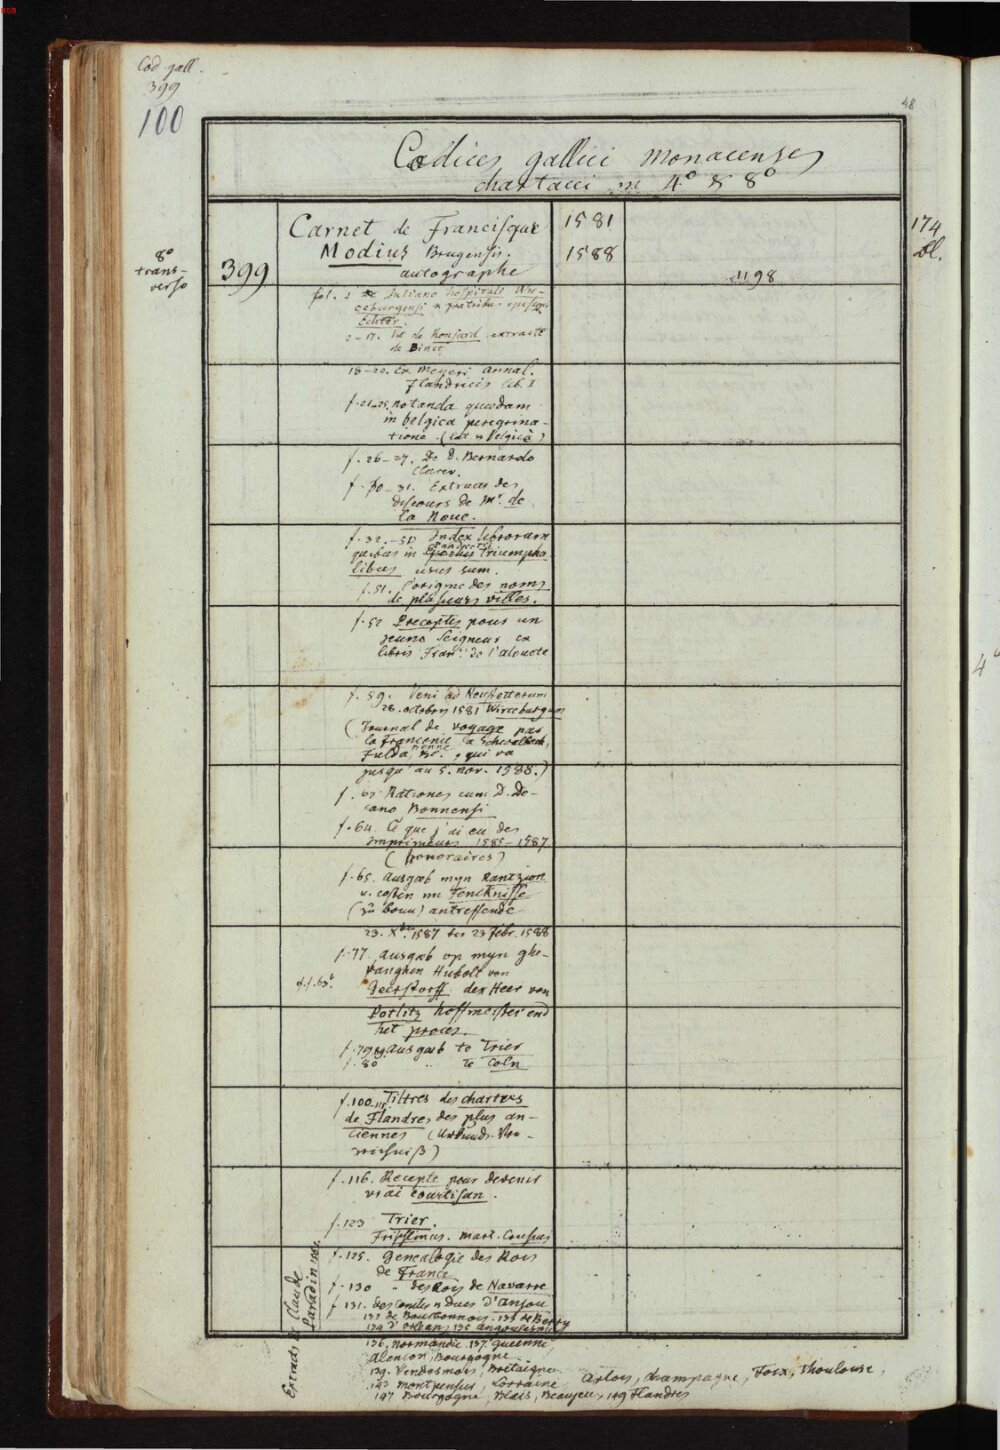 Cod. gall.
399
100
48
Codices gallici monacenses
chartacei in 4° & 8°
8°
trans-
verso
399
Carnet de Francisque
Modius Brugensis.
autographe
1581
1588
1198
174
Bl.
fol. 1 de Juliano hospitali Wir-
ceburgensi & patribus
Echter.
2-17. Vie de Ronsard extraite
de Binet
18-20. Ex Meyeri annal.
Flandricis lib. I
f. 21-25. notanda quaedam
in belgica peregrina-
tione. (lat. & belgice)
f. 26-27. De D. Bernardo
Clarev.
f. 30-31. Extraict des
discours de Mr. de
la Noue.
f. 32.-50 Index librorum
quibus in Pandectis Triumpha
libus usus sum.
f. 51. l'origine des noms
de plusieurs villes.
f. 52 Preceptes pour un
jeune Seigneur ex
libris Fran. de l'alouete
f. 59. Veni ad Neustetterum
28. octobris 1581 Wirceburgum
(Journal de voyage par
la Franconie, a Schwalbach,
Fulda, Bonne &c., qui va
jusqu'au 5. nov. 1588.)
f. 63 Rationes cum D. De-
cano Bonnensi
f. 64. Ce que j'ai eu des
imprimeurs 1585-1587
(honoraires)
f. 65. Ausgab myn Rantzion
u. costen im Fencknisse
(zu bonn) antreffende
23. Xbr. 1587 bis 23 febr. 1588
f. 77. Ausgab op myn ghe-
fanghen Hubolt von
Geerstorff der Heer von
Porlitz hoffmeister end
het proces.
f. 79 Ausgab te Trier
f. 80 " te Coln
f. 100. Tiltres des chartres
de Flandres des plus an-
ciennes (Urkund-Ver-
zeichniß)
f. 116. Recepte pour devenir
vrai courtisan.
f. 123 Trier.
f. 125. Genealogie des Rois
de France
f. 130 " des Rois de Navarre
f. 131. des Comtes & Ducs d'Anjou
132 de Bourbonnois. 133 de Berry
134 d'Orleans 135 angoulesme
136. Normandie 137 Guienne
Alencon, Bourgogne
139. Vendosmois, Bretaigne
143 Montpensier, Lorraine, Artois, Champagne, Foix, Thoulouse,
147 Bourgogne, Blais, Beaujeu, 149 Flandres
Extraits de Claude
Paradin